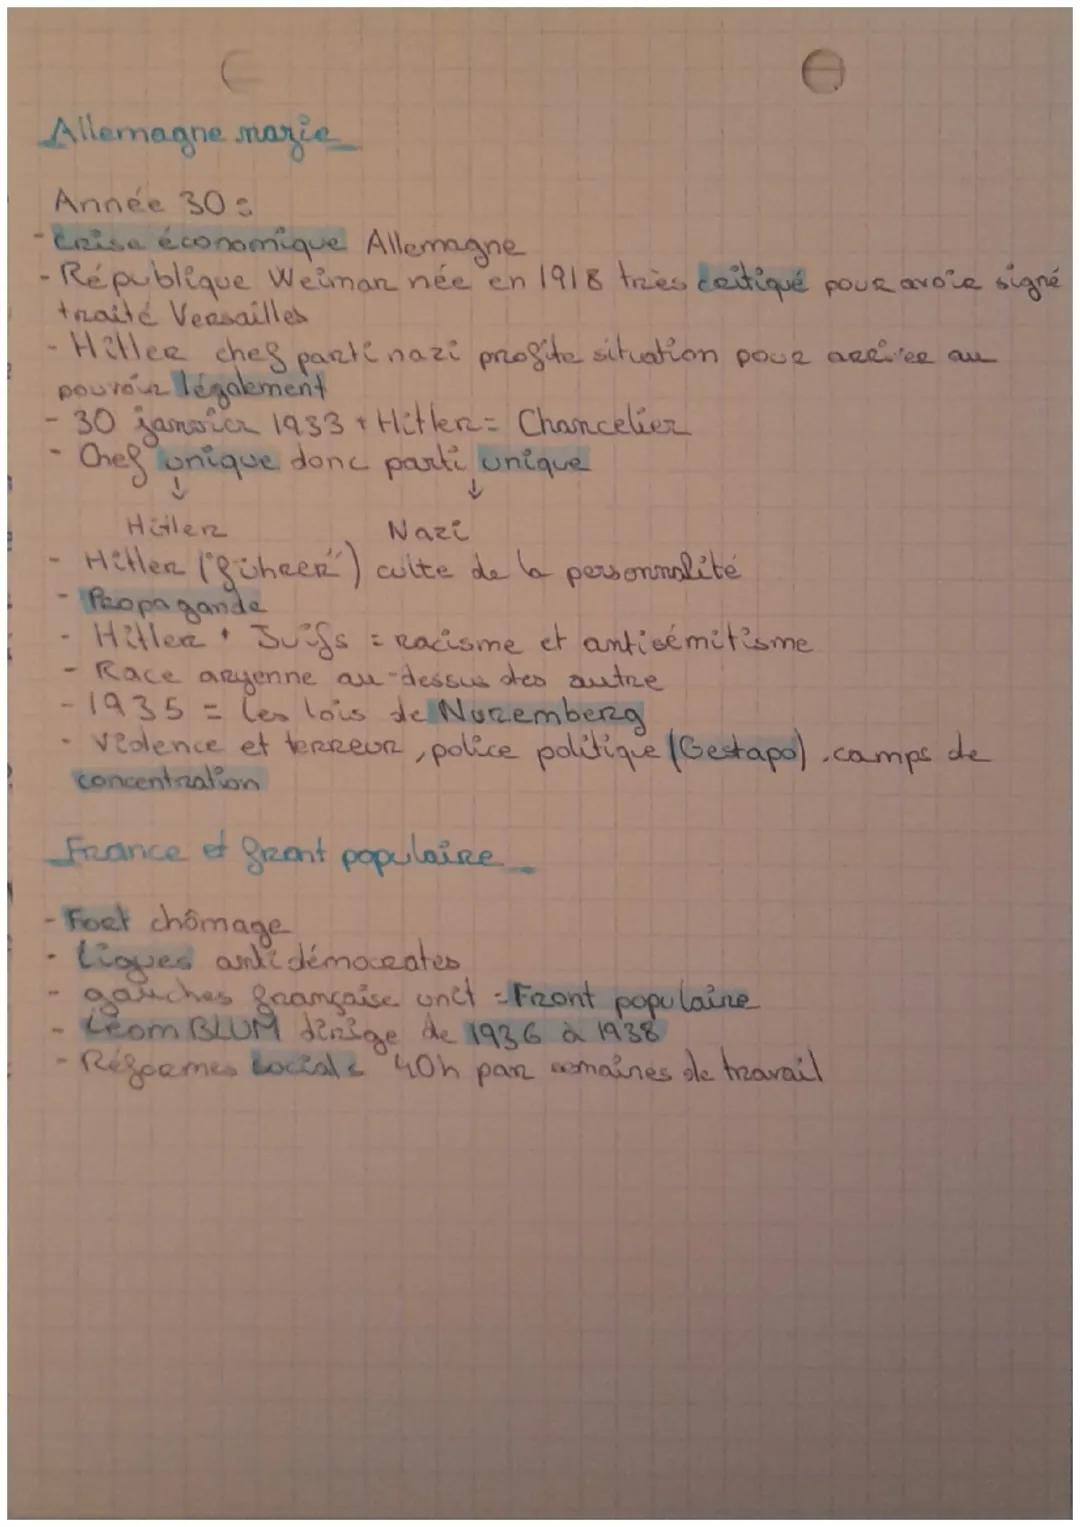 Allemagne nazie
Année 30 :
- Crise économique Allemagne
- République Weimar née en 1918 très critiqué pour avoir signé
traité Versailles
- Hitler chef parti nazi profite situation pour arriver au
pouvoir légalement
- 30 janvier 1933 + Hitler = Chancelier
- Chef unique donc parti unique
↓ ↓
Hitler Nazi
- Hitler ("führer") culte de la personnalité
- Propagande
- Hitler + Juifs = racisme et antisémitisme
- Race aryenne au-dessus des autre
- 1935 = les lois de Nuremberg
- Violence et terreur, police politique (Gestapo), camps de
concentration
France et front populaire
- Fort chômage
- Ligues antidémocrates
- gauches française unit = Front populaire
- Léom BLUM dirige de 1936 à 1938
- Réformes social : 40h par semaines de travail